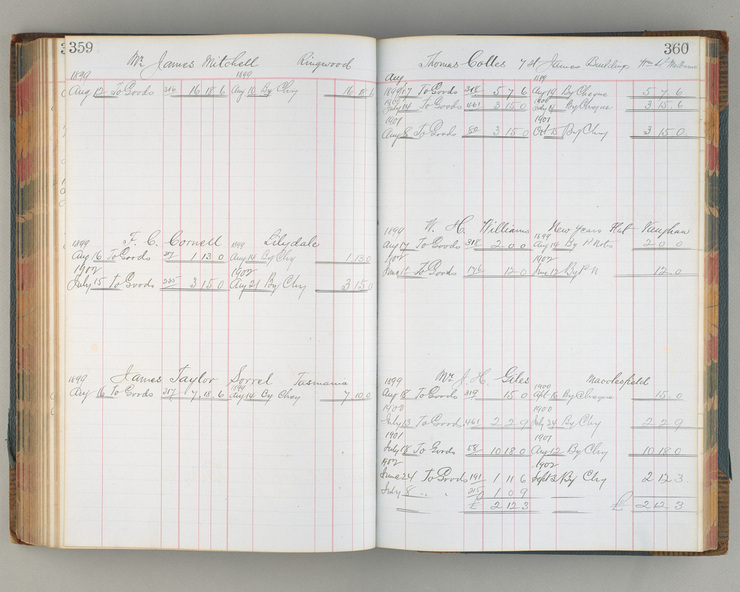 359
Mr James Mitchell Ringwood
1899 1899
Aug 12 To Goods 316 16 18 6 Aug 18 By Chq 16 18 6
1899 F. C. Cornell 1899 Lilydale
Aug 16 To Goods 1 13 0 Aug 14 By Chq 1 13 0
1902 1902
July 15 To Goods 225 3 15 0 Aug 21 By Chq 3 15 0
1899 James Taylor Sorrel Tasmania
1899
Aug 16 To Goods 317 7 18 6 Aug 14 By Chq 7 10 0
360
Thomas Colles 7 St James Building Wm St Melbourne
Aug
1899 17 To Goods 318 5 7 6 Aug 14 By Cheque 5 7 6
1900 1900
July 14 To Goods 461 3 15 0 By Cheque 3 15 6
1901 1901
Aug 8 To Goods 80 3 15 0 Oct 15 By Chq 3 15 0
1899 W. H. Williams New Years Flat Vaughan
1899
Aug 17 To Goods 318 2 0 0 Aug 14 By P Note 2 0 0
1902 1902
June 12 To Goods 176 12 0 June 12 By P N 12 0
1899 Mr J. H. Giles Macclesfield
1900
Aug 18 To Goods 319 15 0 Apl 16 By Cheque 15 0
1900 1900
July 13 To Goods 461 2 2 9 July 24 By Chq 2 2 9
1901 1901
July 18 To Goods 58 10 18 0 Aug 12 By Chq 10 18 0
1902 1902
June 24 To Goods 191 1 11 6 Sept 2 By Chq 2 12 3
July 8 " " 1 0 9
£ 2 12 3 £ 2 12 3